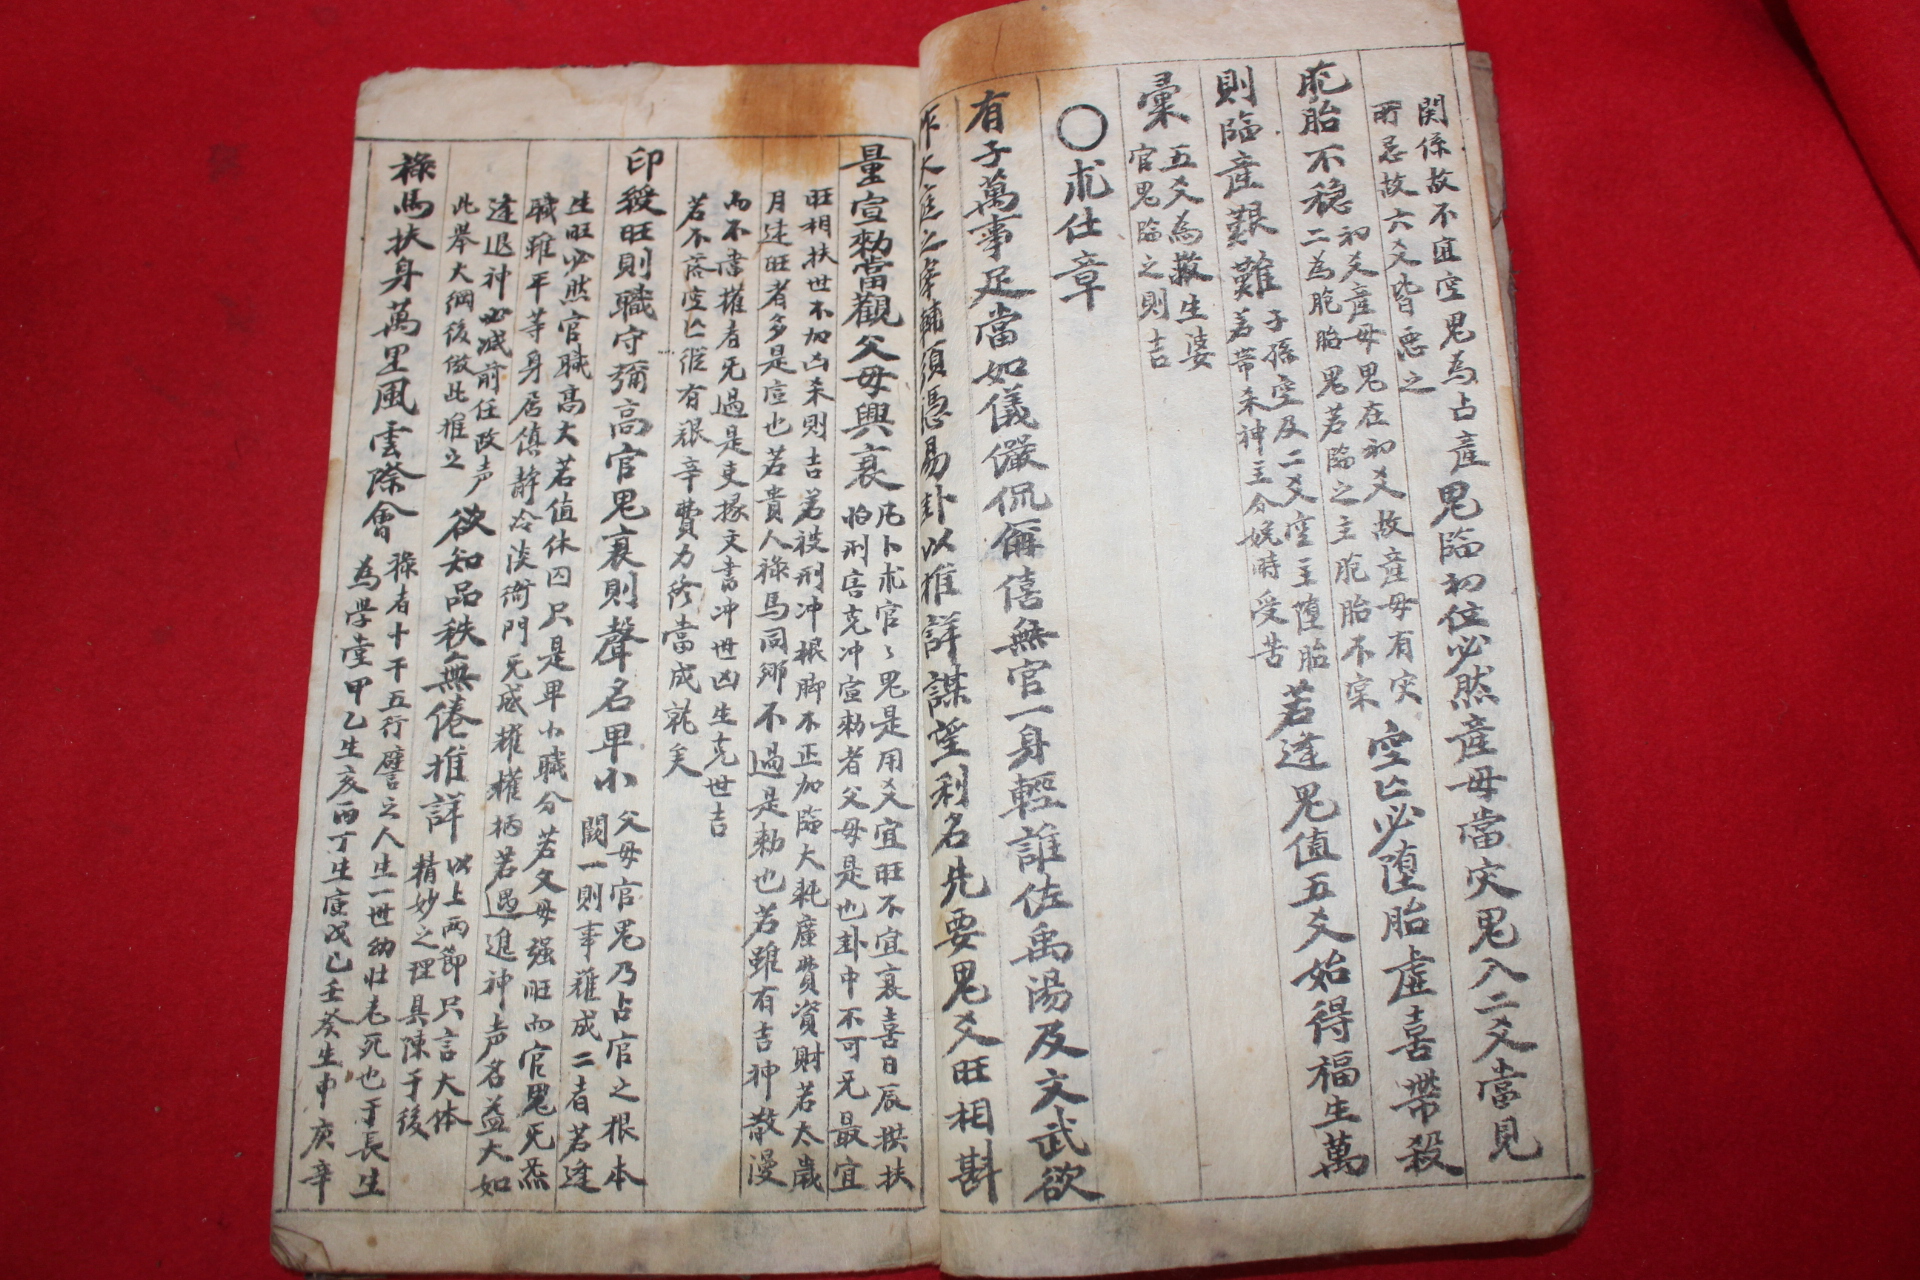 関係故不宜空鬼為占産鬼臨初位必然産母當灾鬼入二爻當見
所忌故六爻皆悪之
胞胎不穏初爻産母鬼在初爻故産母有灾空亡必堕胎虚喜帶殺
二為胞胎鬼若臨之主胞胎不宲
則臨産艱難子孫空及二爻空主堕胎若逢鬼值五爻始得福生萬
若帶杀神主分娩時受苦
彙五爻為救生婆
官鬼臨之則吉
〇求仕章
有子萬事足當如儀儼侃侕僖無官一身輕誰佐禹湯及文武欲
作大廷之宰輔須憑易卦以推詳謀望利名先要鬼爻旺相斟
量宣勅當觀父母興衰凡卜求官々鬼是用爻宜旺不宜衰喜日辰拱扶
怕刑害克冲宣勅者父母是也卦中不可无最宜
旺相扶世不加凶杀則吉若被刑冲根脚不正加臨大耗廣費資財若太歳
月建旺者多是宣也若貴人祿馬同鄉不過是勅也若雖有吉神散漫
而不當權者无過是吏掾文書冲世凶生克世吉
若不落空亡縱有艱辛費力終當成就矣
印綬旺則職守彌高官鬼衰則聲名卑小父母官鬼乃占官之根本
闕一則事難成二者若逢
生旺必然官職高大若值休囚只是卑小職分若父母强旺而官鬼无炁
職雖平等身居慎靜冷淡衙門无威權權柄若遇進神声名益大如
逢退神必減前任政声欲知品秩無倦推詳以上兩節只言大体
此舉大綱後倣此推之精妙之理具陳于後
祿馬扶身萬里風雲際會祿者十干五行譬之人生一世幼壮老死也于長生
為學堂甲乙生亥丙丁生寅戊己壬癸生申庚辛